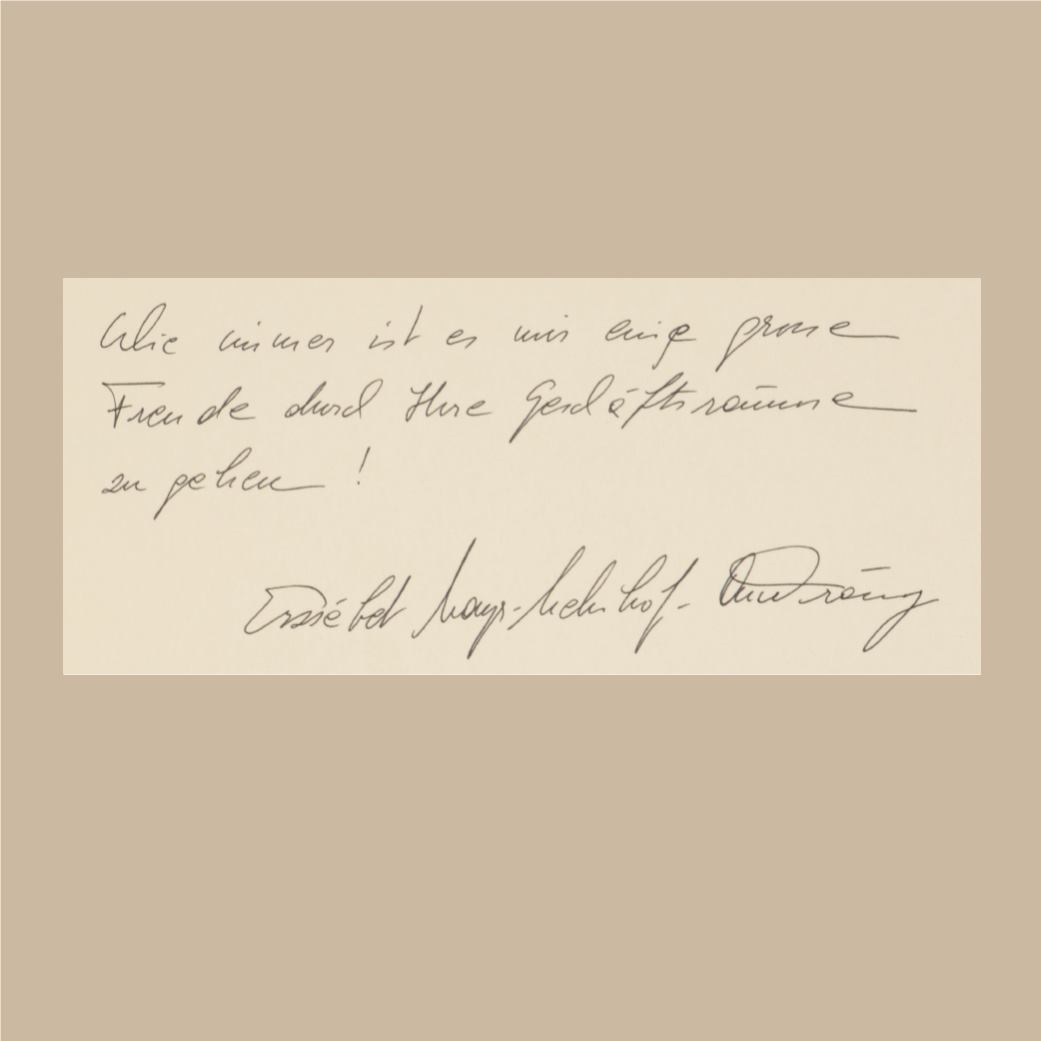 Wie immer ist es mir eine grosse
Freude durch Ihre Geschäftsräume
zu gehen !
Erzsébet Mayr-Melnhof-